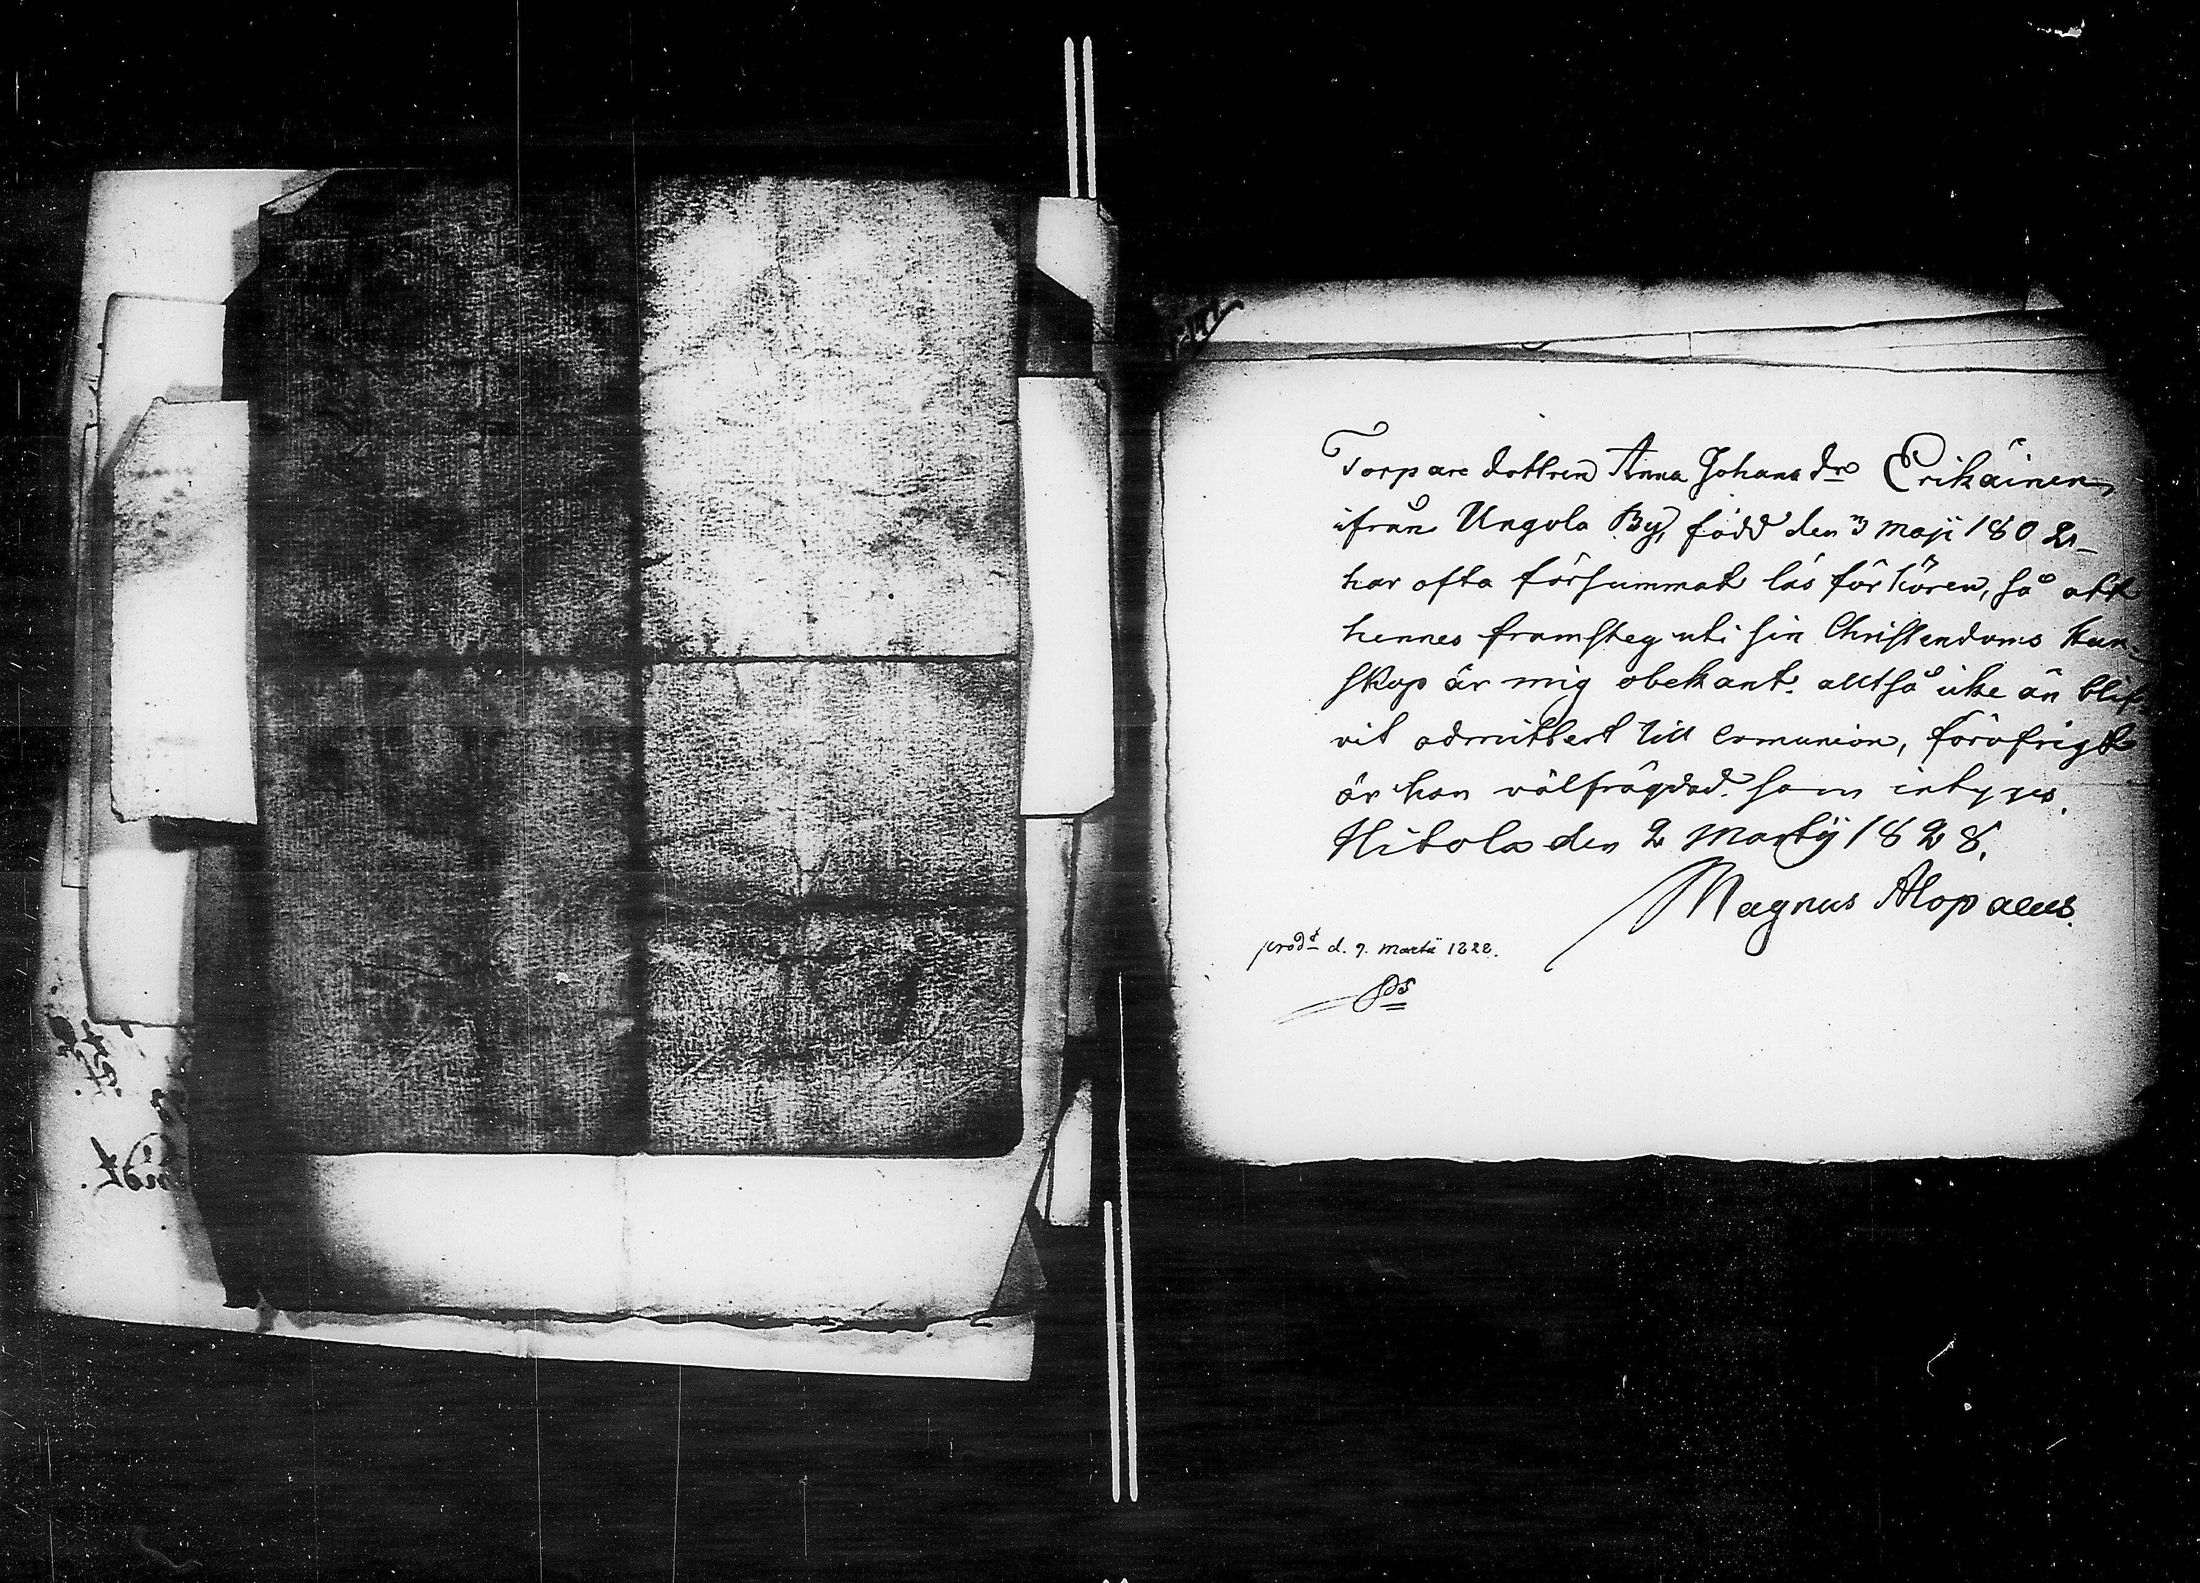 Torpare dottren Anna Johans dr Erikäinen
ifrån Ungola By, född den 3 Maji 1802
har ofta försummat läs förhören, så att
hennes framsteg uti sin Christendoms kun-
skap är mig obekant. alltså icke än blif-
vit admittert till Comunion, föröfrigt
är hon välfrägdad. som intyges.
Hitola den 2 Martij 1828.
Magnus Alopaeus.
prodt d. 9. Martii 1828.